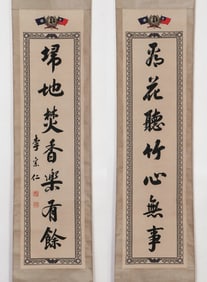 看花聽竹心無事
埽地焚香樂有餘
李宗仁